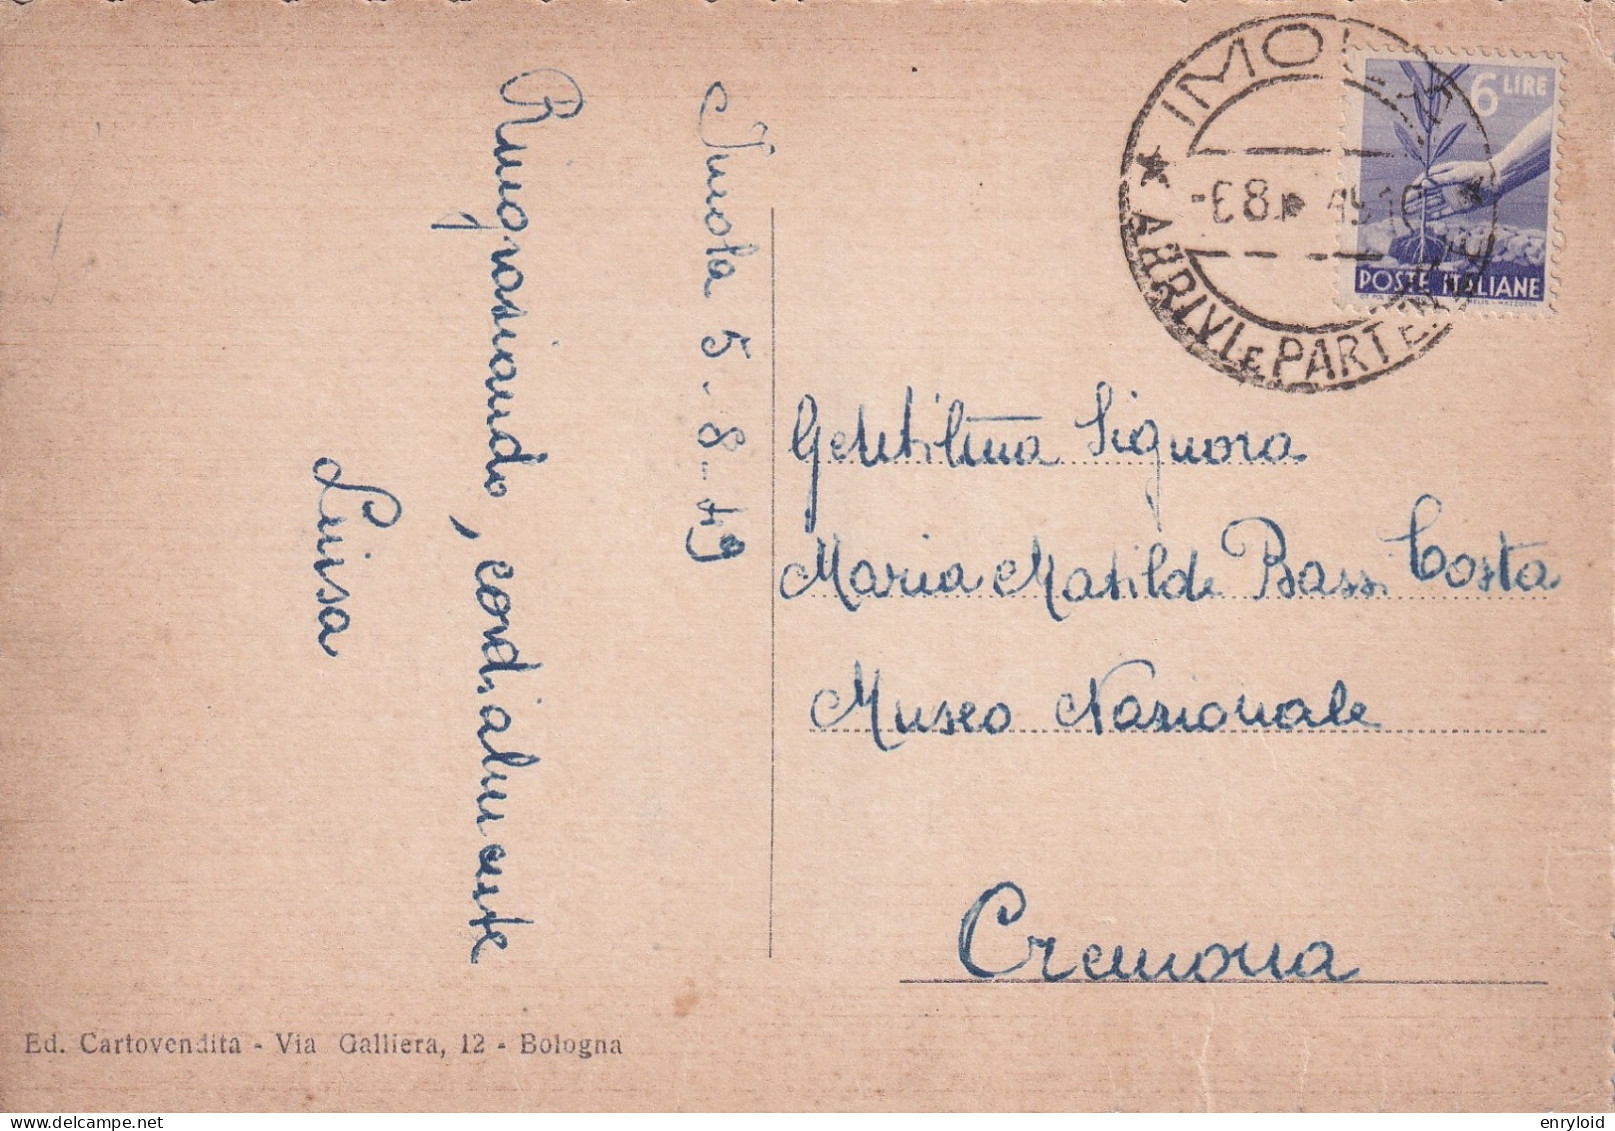 Imola 5-8-49
Ringrasiando, cordialmente
Luisa
IMOLA
ARRIVI E PARTENZE
6 LIRE
POSTE ITALIANE
Gentilma Signora
Maria Matilde Bassi Costa
Museo Nazionale
Cremona
Ed. Cartovendita - Via Galliera, 12 - Bologna
enryloid